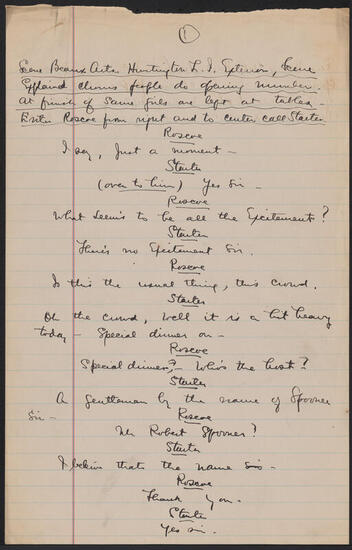 1
Scene Beaux Arts. Huntington L. I. Exterior, Scene
Explained chorus people do opening number.
At finish of same girls are left at tables -
Enter Roscoe from right and to center call Starter
Roscoe
I say, just a moment -
Starter
(over to him) Yes Sir -
Roscoe
What seems to be all the Excitement?
Starter
There's no Excitement Sir.
Roscoe
Is this the usual thing, this crowd.
Starter
Oh the crowd, Well it is a bit heavy
today - Special dinner on -
Roscoe
Special dinner? - Who's the host?
Starter
A gentleman by the name of Spooner
Sir -
Roscoe
Mr Robert Spooner?
Starter
I believe that's the name Sir -
Roscoe
Thank you -
Starter
Yes sir.